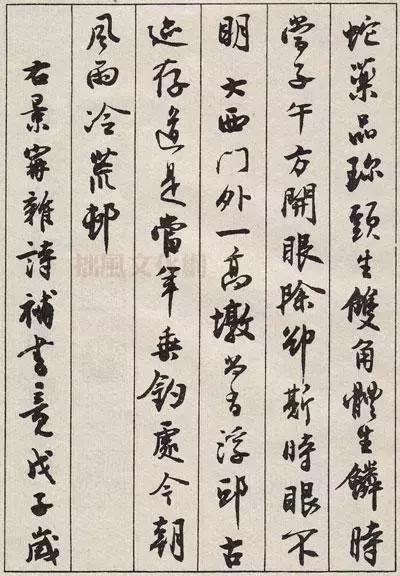 蛇藥品珍頭生雙角體生鱗時
當子午方開眼除卻斯時眼不
明大西門外一高墩尚有浮邱古
迹存道是當年垂釣處今朝
風雨冷荒邨
右景甯雜詩補書竟戊子歲
拙風文化網